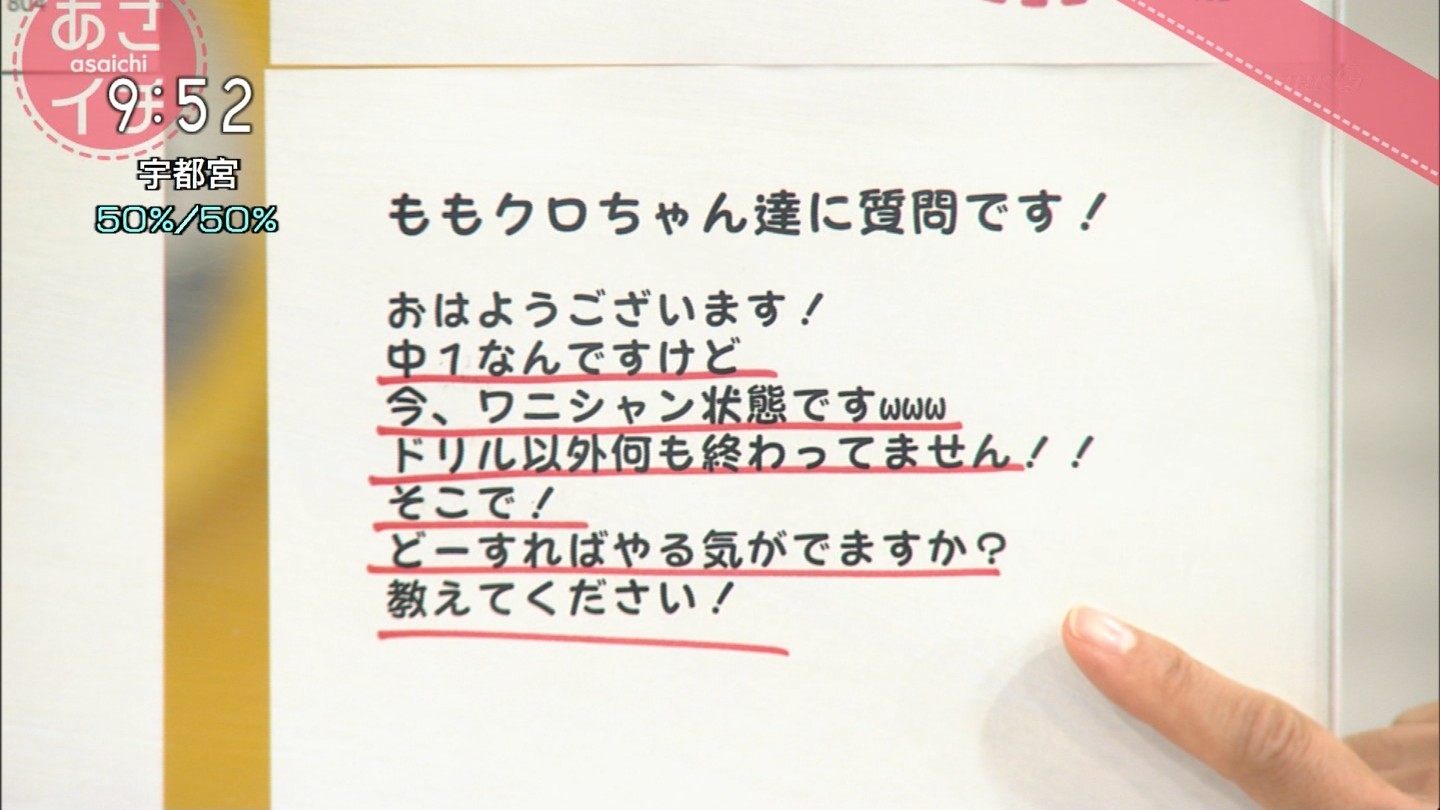 あさ
asaichi
イチ
9:52
宇都宮
50%/50%
ももクロちゃん達に質問です！
おはようございます！
中１なんですけど
今、ワニシャン状態ですwww
ドリル以外何も終わってません！！
そこで！
どーすればやる気がでますか？
教えてください！